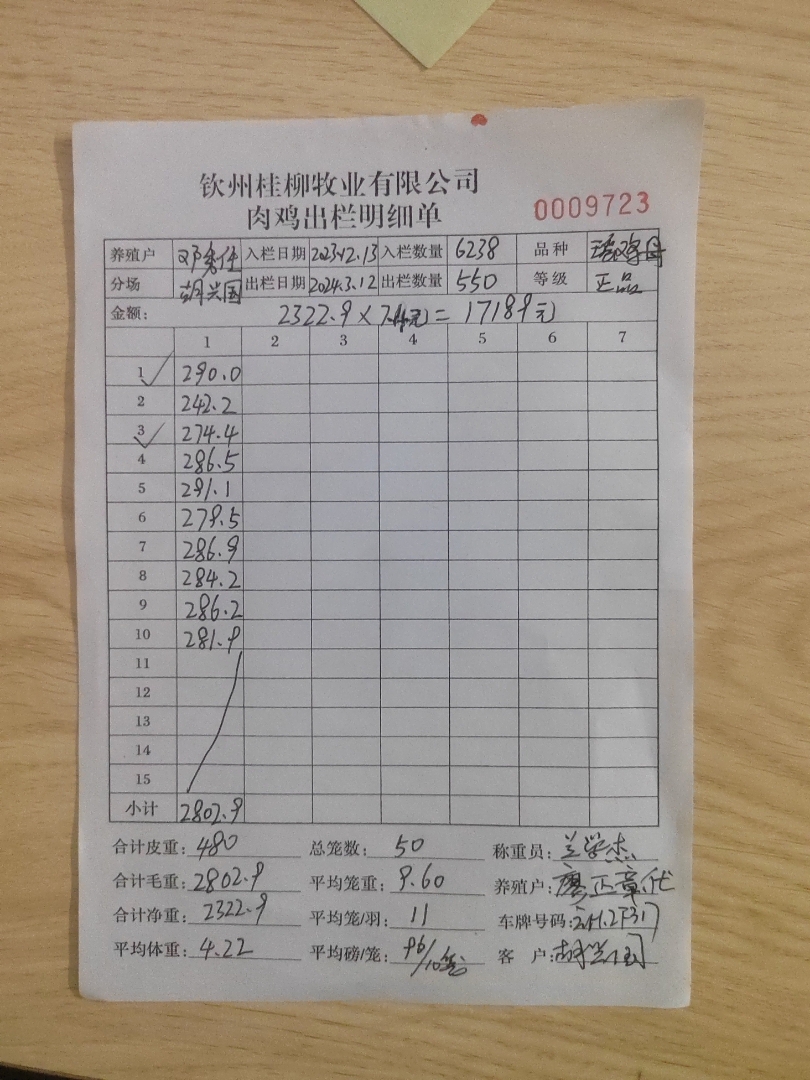 钦州桂柳牧业有限公司
肉鸡出栏明细单
0009723
养殖户 入栏日期 2023.12.13 入栏数量 6238 品种
分场 胡兴国 出栏日期 2024.3.12 出栏数量 550 等级 正品
金额: 2322.9 × 7.4元 = 17189元
1 2 3 4 5 6 7
1 290.0
2 242.2
3 274.4
4 286.5
5 291.1
6 279.5
7 286.9
8 284.2
9 286.2
10 281.9
11
12
13
14
15
小计 2802.9
合计皮重: 480 总笼数: 50 称重员: 兰学杰
合计毛重: 2802.9 平均笼重: 9.60 养殖户: 廖正章代
合计净重: 2322.9 平均笼/羽: 11 车牌号码:
平均体重: 4.22 平均磅/笼: 96/10笼 客户: 胡兴国